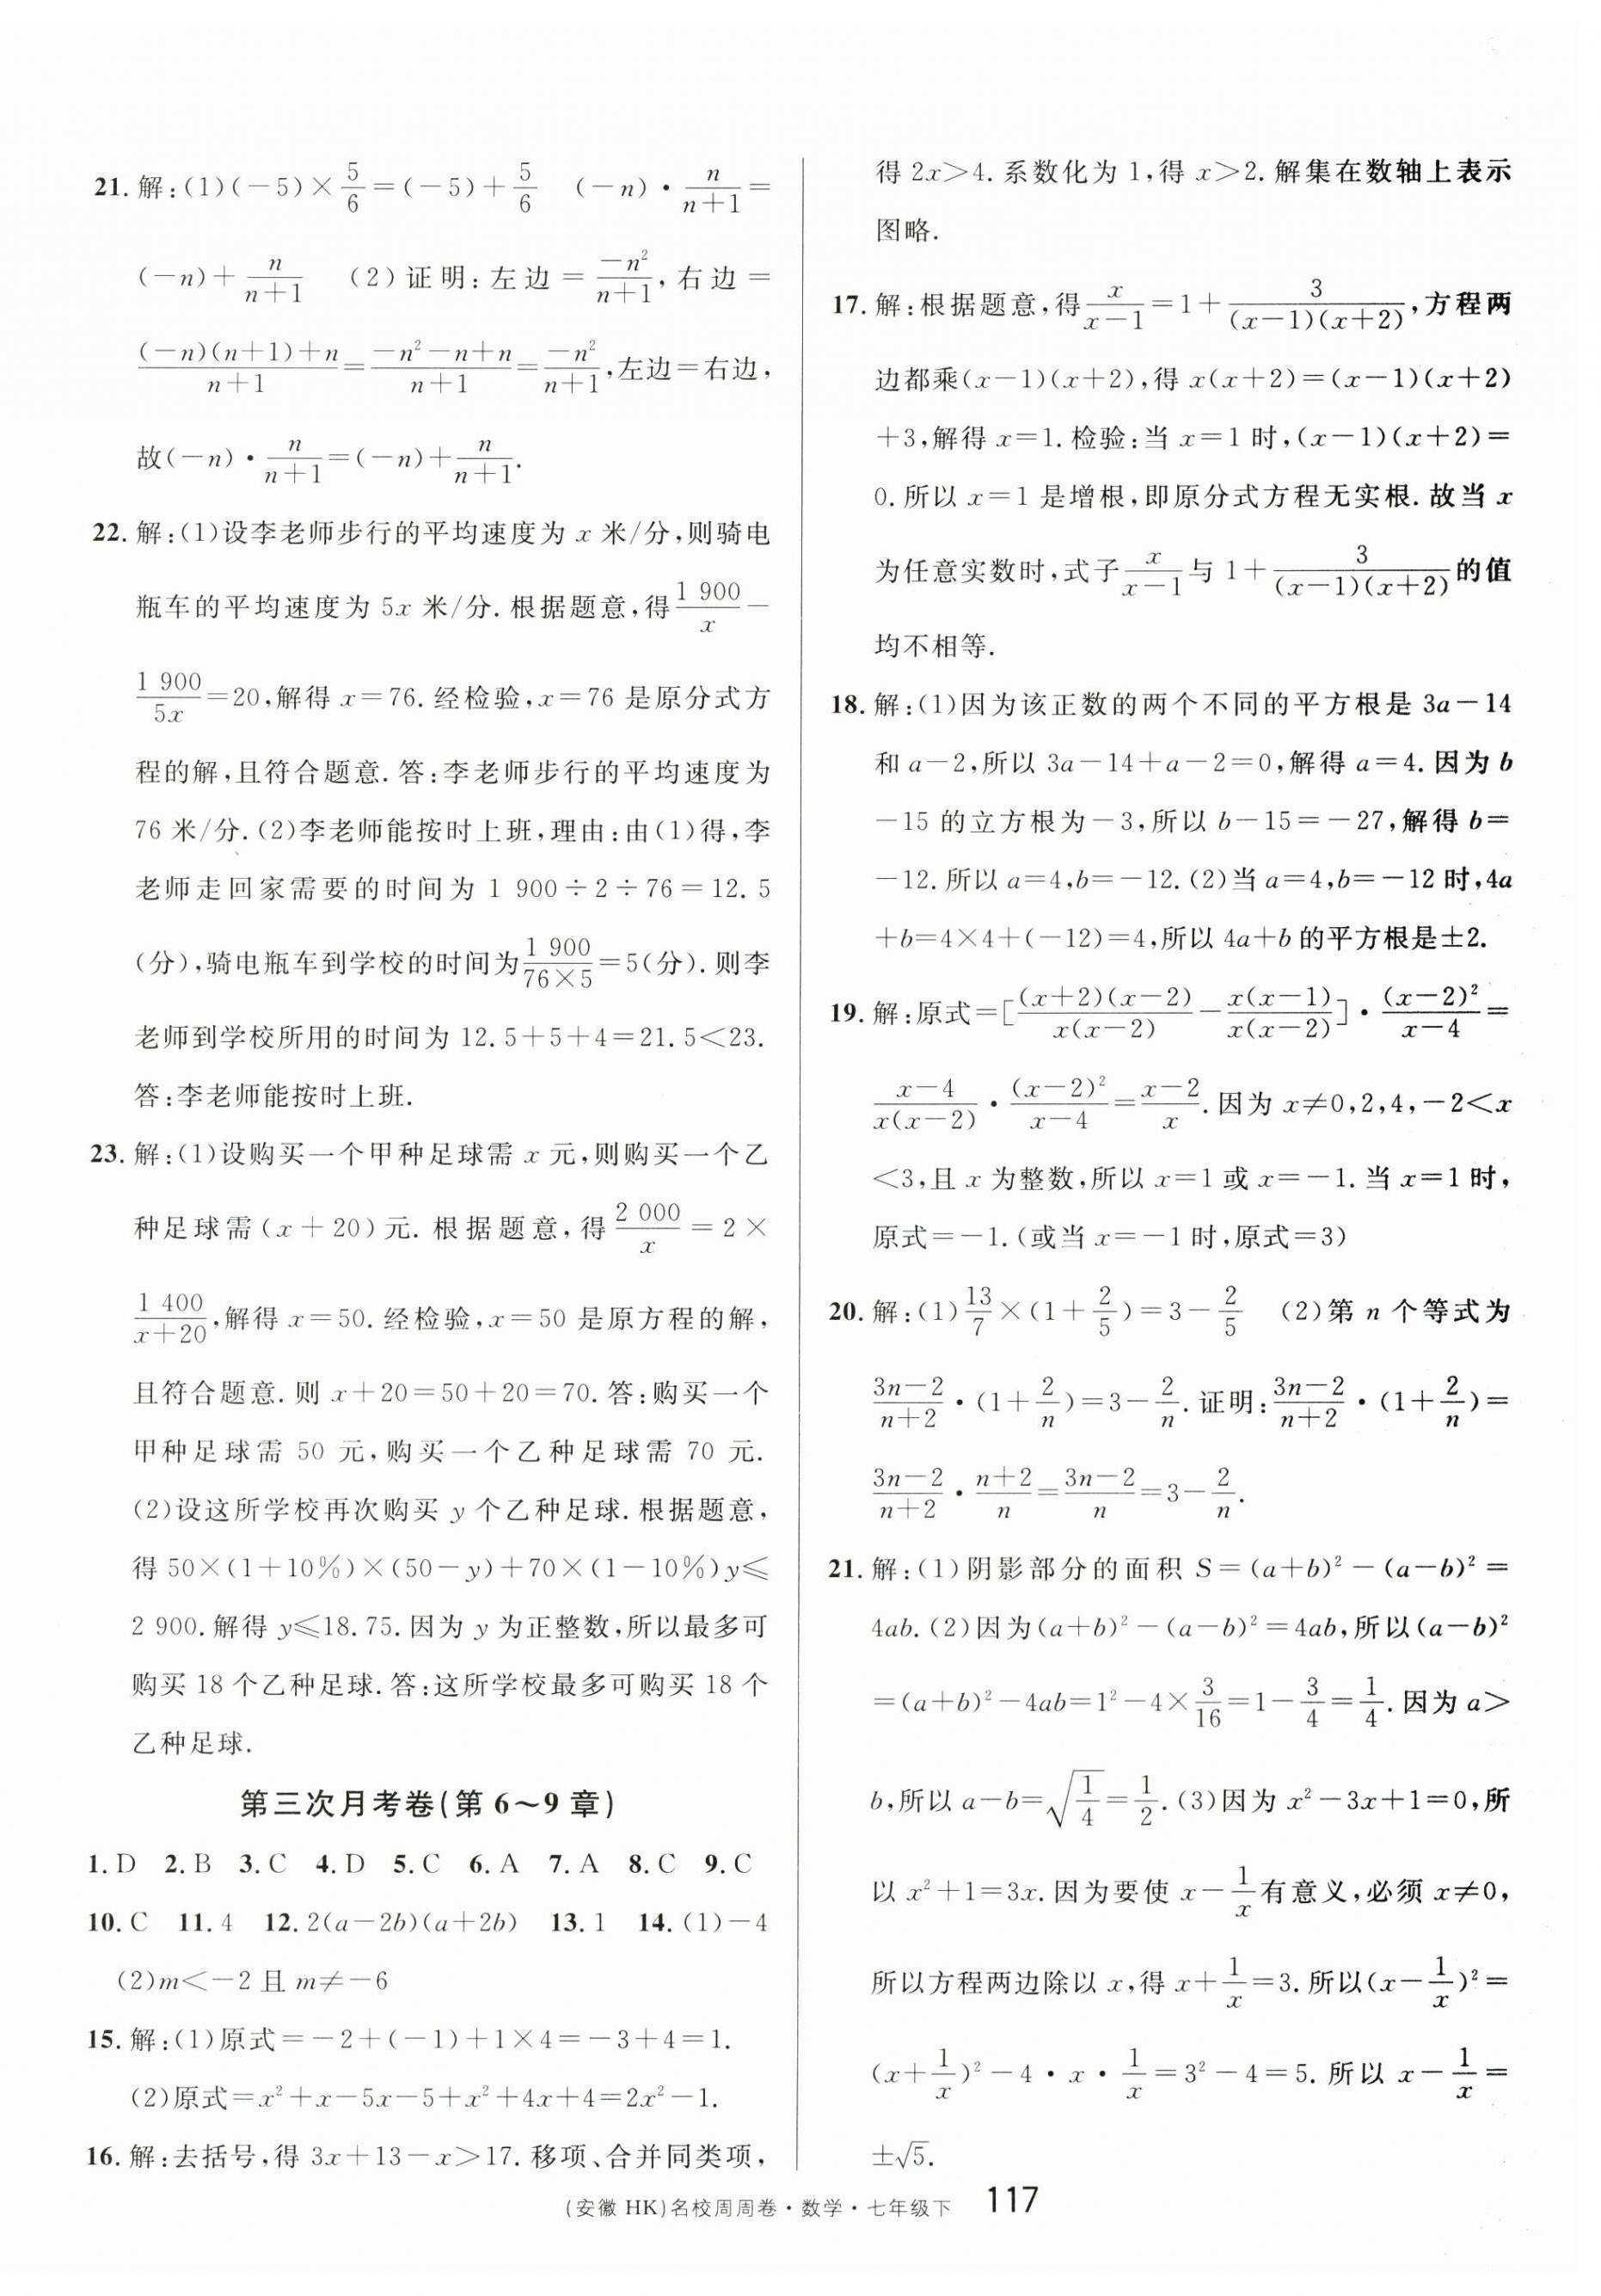 21. 解:(1)(－5)×5/6=(－5)+5/6　(－n)·n/(n+1)=
(－n)+n/(n+1)　(2)证明:左边=－n²/(n+1),右边=
((－n)(n+1)+n)/(n+1)=(－n²－n+n)/(n+1)=－n²/(n+1),左边=右边,
故(－n)·n/(n+1)=(－n)+n/(n+1).
22. 解:(1)设李老师步行的平均速度为 x 米/分,则骑电
瓶车的平均速度为 5x 米/分. 根据题意,得 1 900/x－
1 900/5x=20,解得 x=76. 经检验,x=76 是原分式方
程的解,且符合题意. 答:李老师步行的平均速度为
76 米/分. (2)李老师能按时上班,理由:由(1)得,李
老师走回家需要的时间为 1 900÷2÷76=12. 5
(分),骑电瓶车到学校的时间为 1 900/(76×5)=5(分). 则李
老师到学校所用的时间为 12. 5+5+4=21. 5<23.
答:李老师能按时上班.
23. 解:(1)设购买一个甲种足球需 x 元,则购买一个乙
种足球需(x+20)元. 根据题意,得 2 000/x=2×
1 400/(x+20),解得 x=50. 经检验,x=50 是原方程的解,
且符合题意. 则 x+20=50+20=70. 答:购买一个
甲种足球需 50 元,购买一个乙种足球需 70 元.
(2)设这所学校再次购买 y 个乙种足球. 根据题意,
得 50×(1+10%)×(50－y)+70×(1－10%)y≤
2 900. 解得 y≤18. 75. 因为 y 为正整数,所以最多可
购买 18 个乙种足球. 答:这所学校最多可购买 18 个
乙种足球.
第三次月考卷(第 6～9 章)
1. D　2. B　3. C　4. D　5. C　6. A　7. A　8. C　9. C
10. C　11. 4　12. 2(a－2b)(a+2b)　13. 1　14. (1)－4
(2)m<－2 且 m≠－6
15. 解:(1)原式=－2+(－1)+1×4=－3+4=1.
(2)原式=x²+x－5x－5+x²+4x+4=2x²－1.
16. 解:去括号,得 3x+13－x>17. 移项、合并同类项,
得 2x>4. 系数化为 1,得 x>2. 解集在数轴上表示
图略.
17. 解:根据题意,得 x/(x－1)=1+3/((x－1)(x+2)),方程两
边都乘(x－1)(x+2),得 x(x+2)=(x－1)(x+2)
+3,解得 x=1. 检验:当 x=1 时,(x－1)(x+2)=
0. 所以 x=1 是增根,即原分式方程无实根. 故当 x
为任意实数时,式子 x/(x－1) 与 1+3/((x－1)(x+2)) 的值
均不相等.
18. 解:(1)因为该正数的两个不同的平方根是 3a－14
和 a－2,所以 3a－14+a－2=0,解得 a=4. 因为 b
－15 的立方根为－3,所以 b－15=－27,解得 b=
－12. 所以 a=4,b=－12. (2)当 a=4,b=－12 时,4a
+b=4×4+(－12)=4,所以 4a+b 的平方根是±2.
19. 解:原式=[(x+2)(x－2)/(x(x－2))－x(x－1)/(x(x－2))]·(x－2)²/(x－4)=
(x－4)/(x(x－2))·(x－2)²/(x－4)=(x－2)/x. 因为 x≠0,2,4,－2<x
<3,且 x 为整数,所以 x=1 或 x=－1. 当 x=1 时,
原式=－1. (或当 x=－1 时,原式=3)
20. 解:(1)13/7×(1+2/5)=3－2/5　(2)第 n 个等式为
(3n－2)/(n+2)·(1+2/n)=3－2/n. 证明:(3n－2)/(n+2)·(1+2/n)=
(3n－2)/(n+2)·(n+2)/n=(3n－2)/n=3－2/n.
21. 解:(1)阴影部分的面积 S=(a+b)²－(a－b)²=
4ab. (2)因为(a+b)²－(a－b)²=4ab,所以(a－b)²
=(a+b)²－4ab=1²－4×3/16=1－3/4=1/4. 因为 a>
b,所以 a－b=√(1/4)=1/2. (3)因为 x²－3x+1=0,所
以 x²+1=3x. 因为要使 x－1/x 有意义,必须 x≠0,
所以方程两边除以 x,得 x+1/x=3. 所以(x－1/x)²=
(x+1/x)²－4·x·1/x=3²－4=5. 所以 x－1/x=
±√5.
(安徽 HK)名校周周卷·数学·七年级下　117